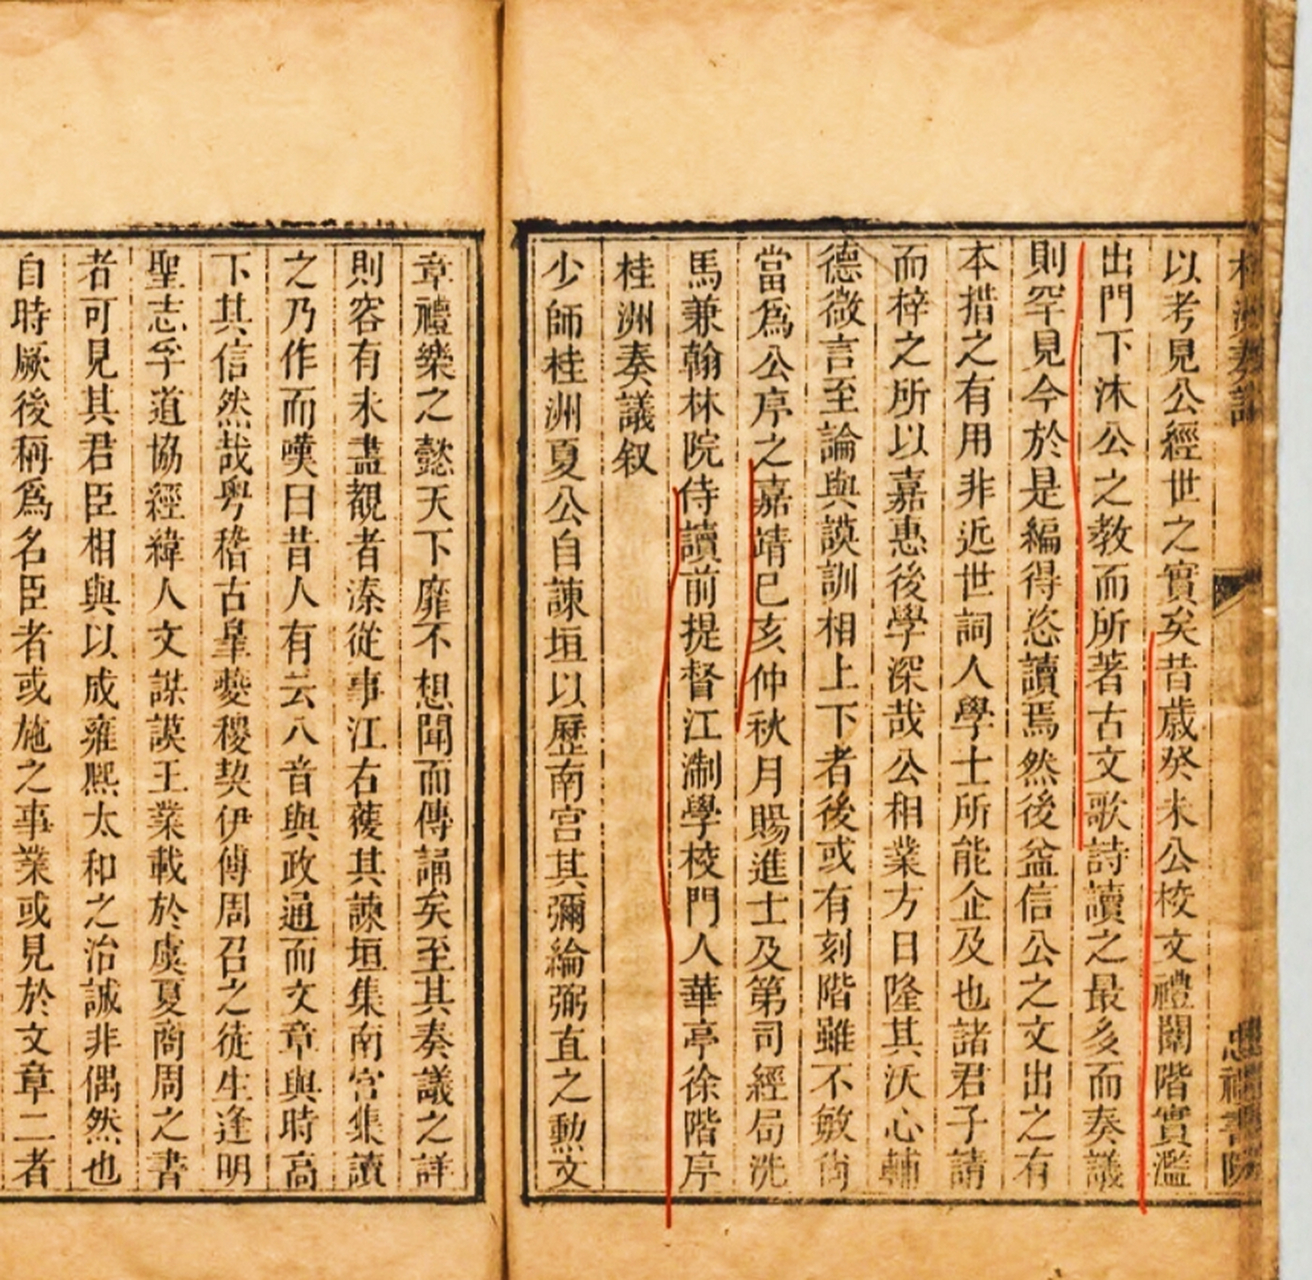 桂洲奏議
忠禮書院
以考見公經世之實矣昔歳癸未公校文禮闈階實濫
出門下沐公之教而所著古文歌詩讀之最多而奏議
則罕見今於是編得恣讀焉然後益信公之文出之有
本措之有用非近世詞人學士所能企及也諸君子請
而梓之所以嘉惠後學深哉公相業方日隆其沃心輔
德微言至論與謨訓相上下者後或有刻階雖不敏尚
當爲公序之嘉靖己亥仲秋月賜進士及第司經局洗
馬兼翰林院侍讀前提督江淛學校門人華亭徐階序
桂洲奏議叙
少師桂洲夏公自諫垣以歷南宮其彌綸弼直之勲文
章禮樂之懿天下靡不想聞而傳誦矣至其奏議之詳
則容有未盡覩者溱從事江右獲其諫垣集南宮集讀
之乃作而嘆曰昔人有云八音與政通而文章與時高
下其信然哉粤稽古臯夔稷契伊傅周召之徒生逢明
聖志孚道協經緯人文謀謨王業載於虞夏商周之書
者可見其君臣相與以成雍熙太和之治誠非偶然也
自時厥後稱爲名臣者或施之事業或見於文章二者